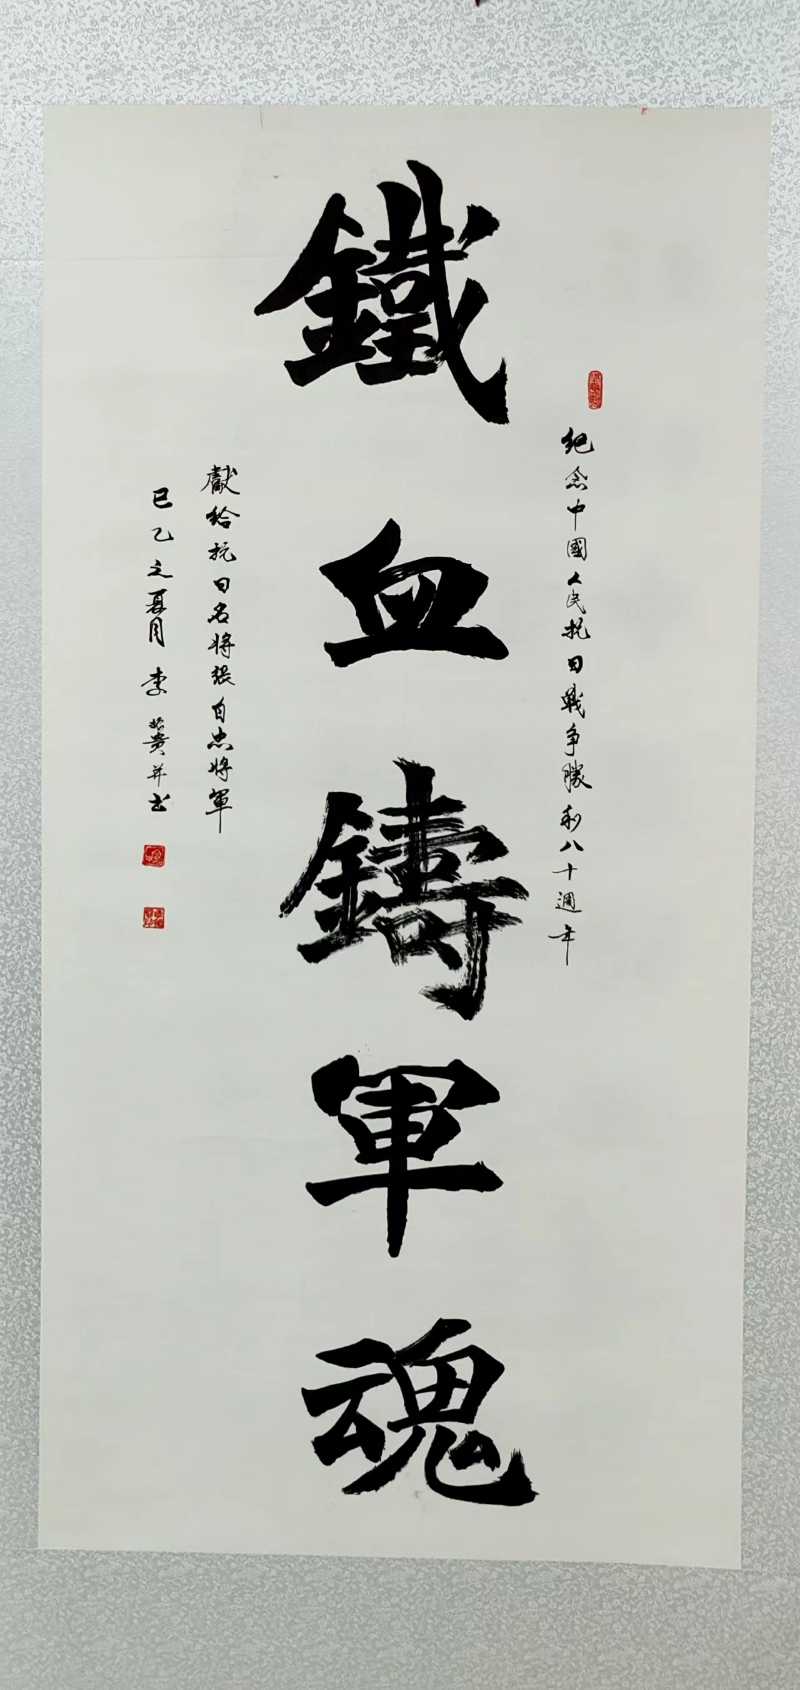 紀念中國人民抗日戰争勝利八十週年
鐵血鑄軍魂
獻給抗日名將張自忠將軍
巳乙之夏月 李 贊并书